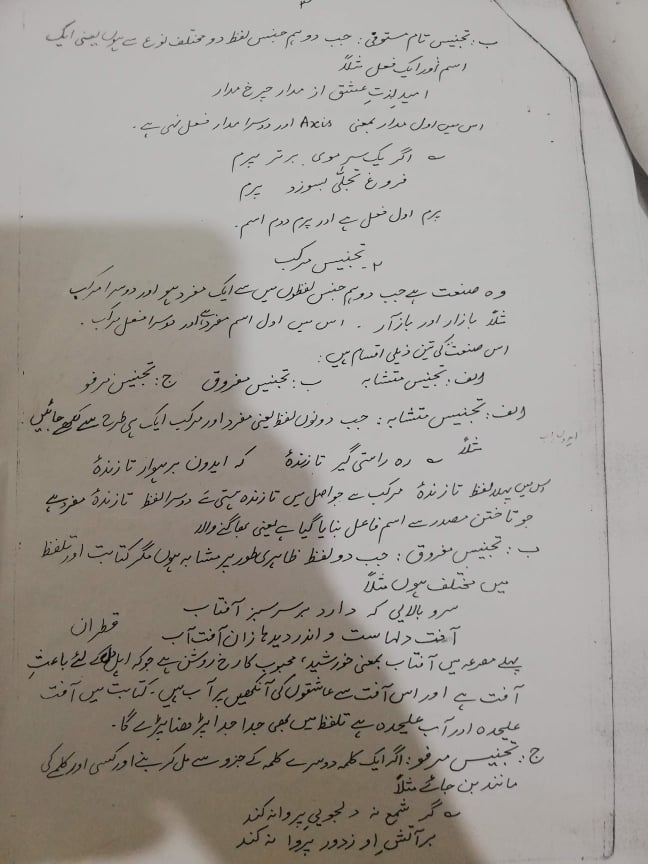 ۳
ب: تجنیس تام مستوفی: جب دو ہم جنس لفظ دو مختلف نوع سے ہوں یعنی ایک
اسم اور ایک فعل مثلاً
امید لذتِ عشق از مدار چرخ مدار
اس میں اول مدار بمعنی Axis اور دوسرا مدار فعل نہی ہے۔
اگر یک سرِ موی برتر پرم
فروغ تجلّی بسوزد پرم
پرم اول فعل ہے اور پرم دوم اسم۔
۲۔ تجنیس مرکب
وہ صنعت ہے جب دو ہم جنس لفظوں میں سے ایک مفرد ہو اور دوسرا مرکب
مثلاً بازار اور باز آر۔ اس میں اول اسم مفرد ہے اور دوسرا فعل مرکب۔
اس صنعت کی تین ذیلی اقسام ہیں:
الف: تجنیس متشابہ ب: تجنیس مفروق ج: تجنیس مرفو
الف: تجنیس متشابہ: جب دونوں لفظ یعنی مفرد اور مرکب ایک ہی طرح سے لکھے جائیں۔
مثلاً رہ راستی گیر تا زندۂ کہ ایدون بر ہوار تازندۂ
اس میں پہلا لفظ تا زندۂ مرکب ہے جو اصل میں تا زندہ ہستی ہے دوسرا لفظ تازندۂ مفرد ہے
جو تاختن مصدر سے اسم فاعل بنایا گیا ہے یعنی بھاگنے والا
ب: تجنیس مفروق: جب دو لفظ ظاہری طور پر مشابہ ہوں مگر کتابت اور تلفظ
میں مختلف ہوں مثلاً
سرو بالایی کہ دارد بر سر سرو آفتاب
آفت دلہاست و اندر دیدہا زان آفت آب قطران
پہلے مصرعہ میں آفتاب بمعنی خورشید، محبوب کا رخ روشن ہے جو کہ اہل دل کے لئے باعثِ
آفت ہے اور اس آفت سے عاشقوں کی آنکھیں پر آب ہیں۔ کتابت میں آفت
علیحدہ اور آب علیحدہ ہے تلفظ میں بھی جدا جدا پڑھنا پڑے گا۔
ج: تجنیس مرفو: اگر ایک کلمہ دوسرے کلمہ کے جزو سے مل کر بنے اور کسی اور کلمے کی
مانند بن جائے مثلاً
گر شمع نہ دلجویی پروانہ کند
بر آتشِ او ز دور پروا نہ کند